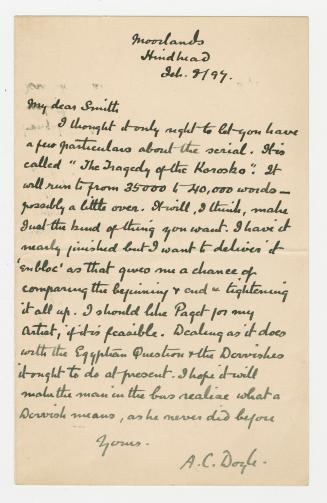 Moorlands
Hindhead
Feb. 8/97.
My dear Smith
I thought it only right to let you have
a few particulars about the serial. It is
called "The Tragedy of the Korosko". It
will run to from 35000 to 40,000 words —
possibly a little over. It will, I think, make
just the kind of thing you want. I have it
nearly finished but I want to deliver it
'enbloc' as that gives me a chance of
comparing the beginning & end & tightening
it all up. I should like Paget for my
artist, if it is feasible. Dealing as it does
with the Egyptian Question & the Dervishes
it ought to do at present. I hope it will
make the man in the bus realise what a
Dervish means, as he never did before
Yours.
A. C. Doyle.